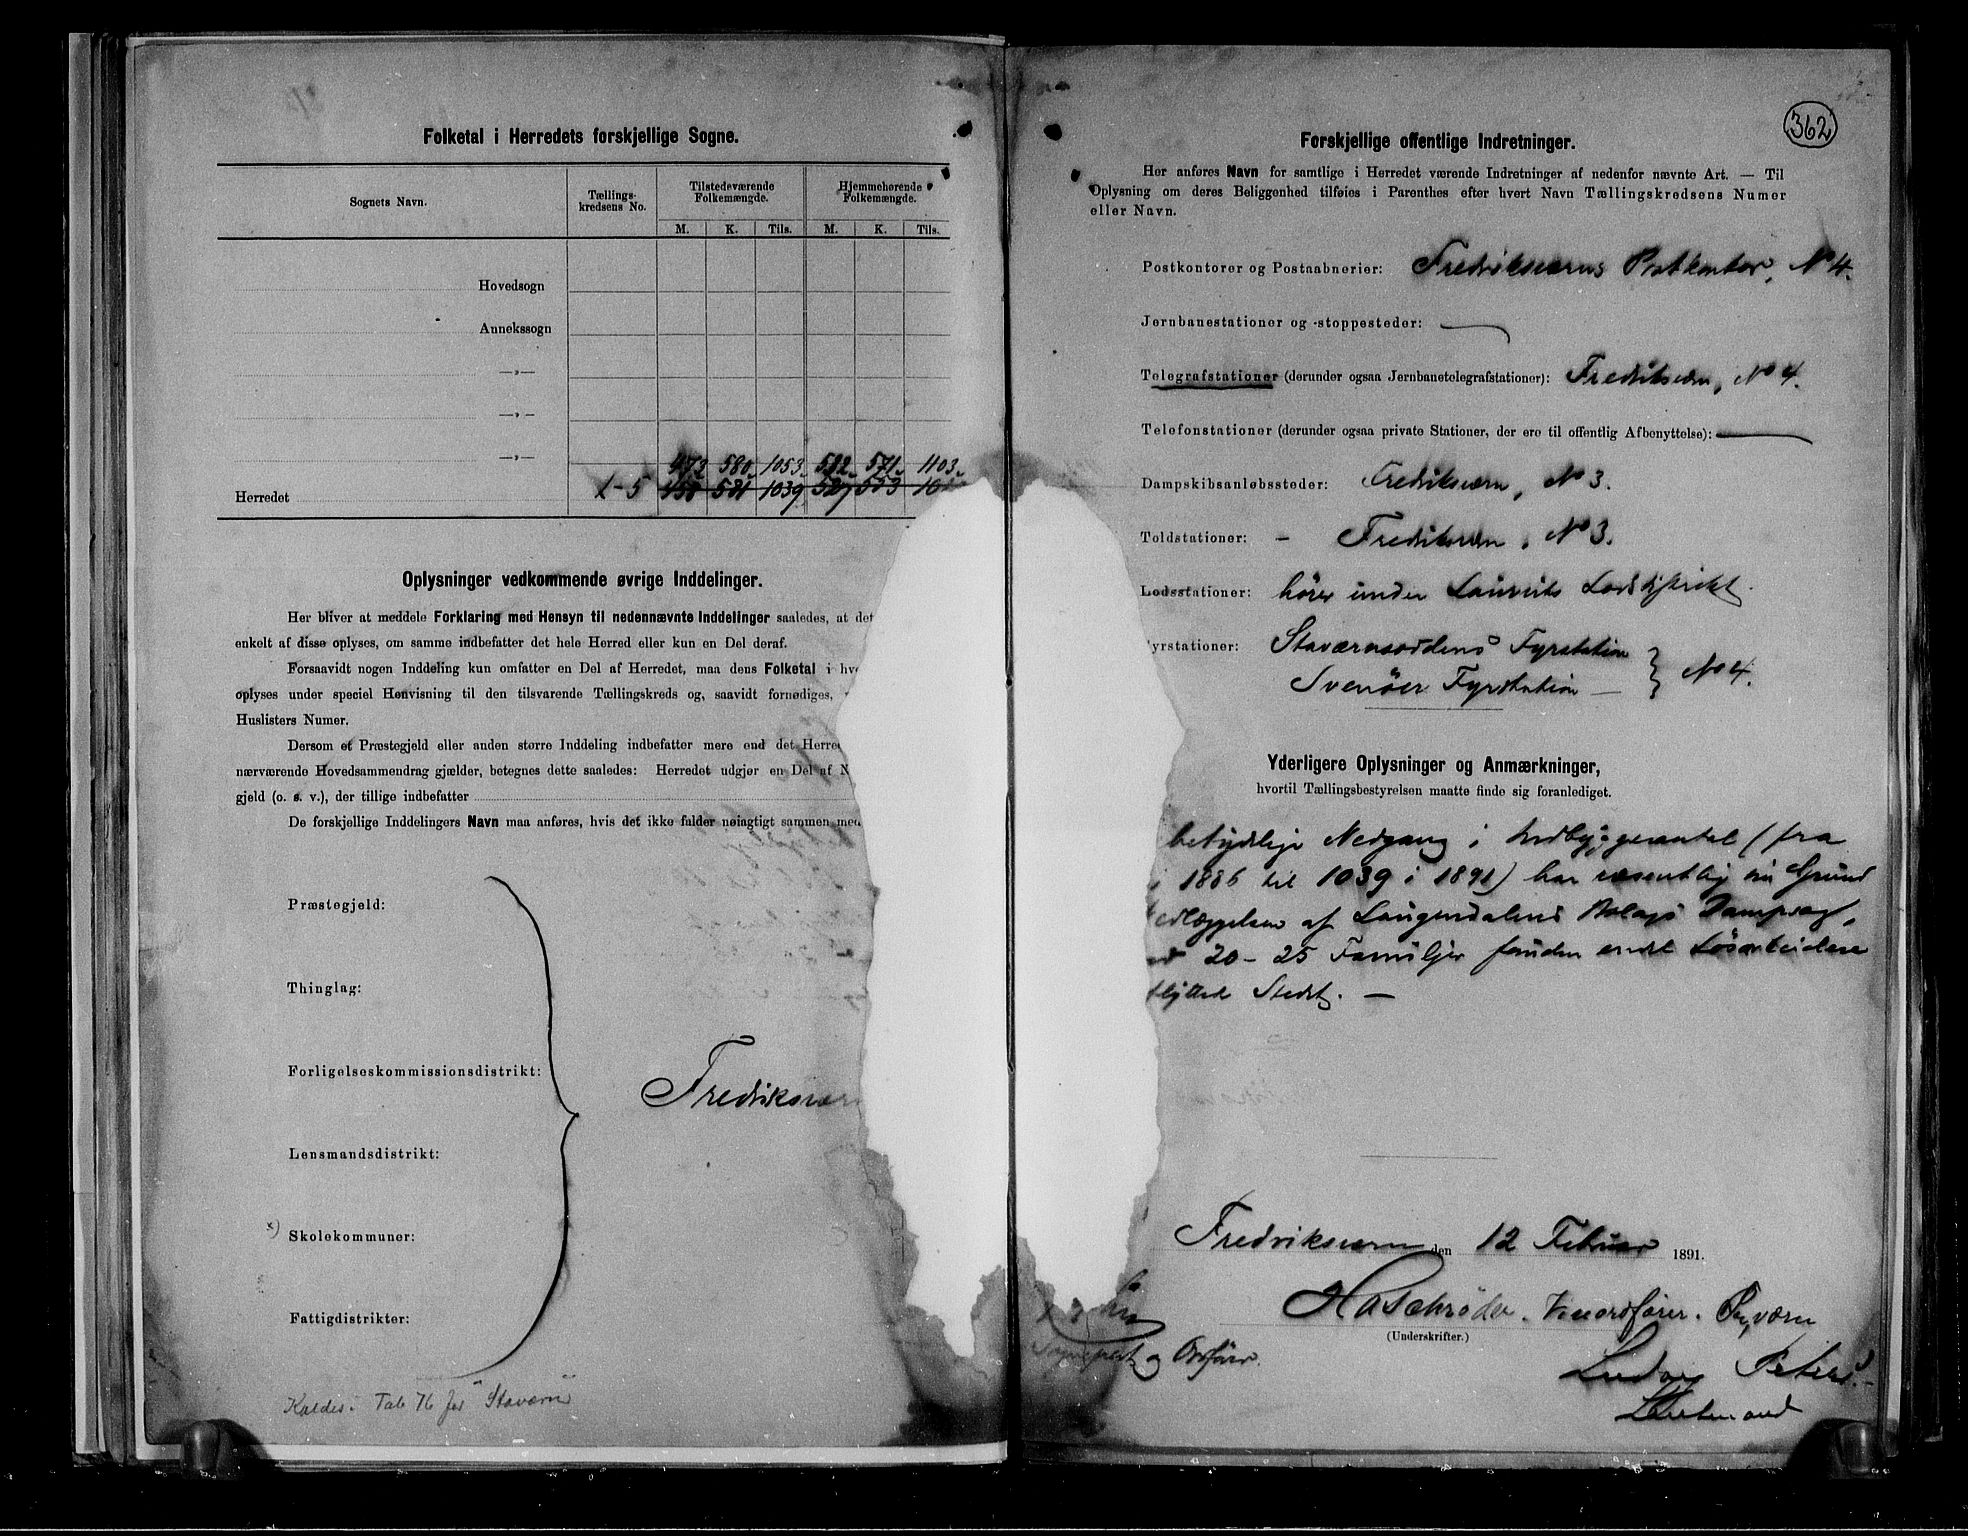 Folketal i Herredets forskjellige Sogne.
Sognets Navn.
Tællings-
kredsens No.
Tilstedeværende
Folkemængde.
Hjemmehørende
Folkemængde.
M. K. Tils. M. K. Tils.
Hovedsogn
Annekssogn
—„—
—„—
—„—
473 580 1053 532 571 1103
Herredet 1-5 458 581 1039 527
Oplysninger vedkommende øvrige Inddelinger.
Her bliver at meddele Forklaring med Hensyn til nedennævnte Inddelinger saaledes, at det
enkelt af disse oplyses, om samme indbefatter det hele Herred eller kun en Del deraf.
Forsaavidt nogen Inddeling kun omfatter en Del af Herredet, maa dens Folketal i
oplyses under speciel Henvisning til den tilsvarende Tællingskreds og, saavidt fornødiges,
Huslisters Numer.
Dersom et Præstegjeld eller anden større Inddeling indbefatter mere end det Herre
nærværende Hovedsammendrag gjælder, betegnes dette saaledes: Herredet udgjør en Del af N
gjeld (o. s. v.), der tillige indbefatter
De forskjellige Inddelingers Navn maa anføres, hvis det ikke falder nøiagtigt sammen med
Præstegjeld:
Thinglag:
Forligelseskommissionsdistrikt:
Fredriksværn
Lensmandsdistrikt:
x) Skolekommuner:
Fattigdistrikter:
Kaldes i Tab 76 for "Staværn"
362
Forskjellige offentlige Indretninger.
Her anføres Navn for samtlige i Herredet værende Indretninger af nedenfor nævnte Art. — Til
Oplysning om deres Beliggenhed tilføies i Parenthes efter hvert Navn Tællingskredsens Numer
eller Navn.
Postkontorer og Postaabnerier: Fredriksværns Postkontor, No 4.
Jernbanestationer og -stoppesteder: —
Telegrafstationer (derunder ogsaa Jernbanetelegrafstationer): Fredriksværn, No 4.
Telefonstationer (derunder ogsaa private Stationer, der ere til offentlig Afbenyttelse): —
Dampskibsanløbssteder: Fredriksværn, No 3.
Toldstationer: — Fredriksværn, No 3.
Lodsstationer: hører under Laurvigs Lodsdistrikt.
yrstationer: Staværnsoddens Fyrstation
Svenøer Fyrstation — } No 4.
Yderligere Oplysninger og Anmærkninger,
hvortil Tællingsbestyrelsen maatte finde sig foranlediget.
betydelige Nedgang i Indbyggerantal (fra
i 1886 til 1039 i 1891) har væsentlig sin Grund
edlæggelsen af Laugendalens Anlags Dampsag,
20 - 25 Familjer foruden endel Løsarbeidere
flyttede Stedet. —
Fredriksværn den 12 Februar 1891.
Ha Schrøder. Viceordfører. Frværn
(Underskrifter.)
Sogneprest og Ordfører.
Ludvig Peters.
Lensmand